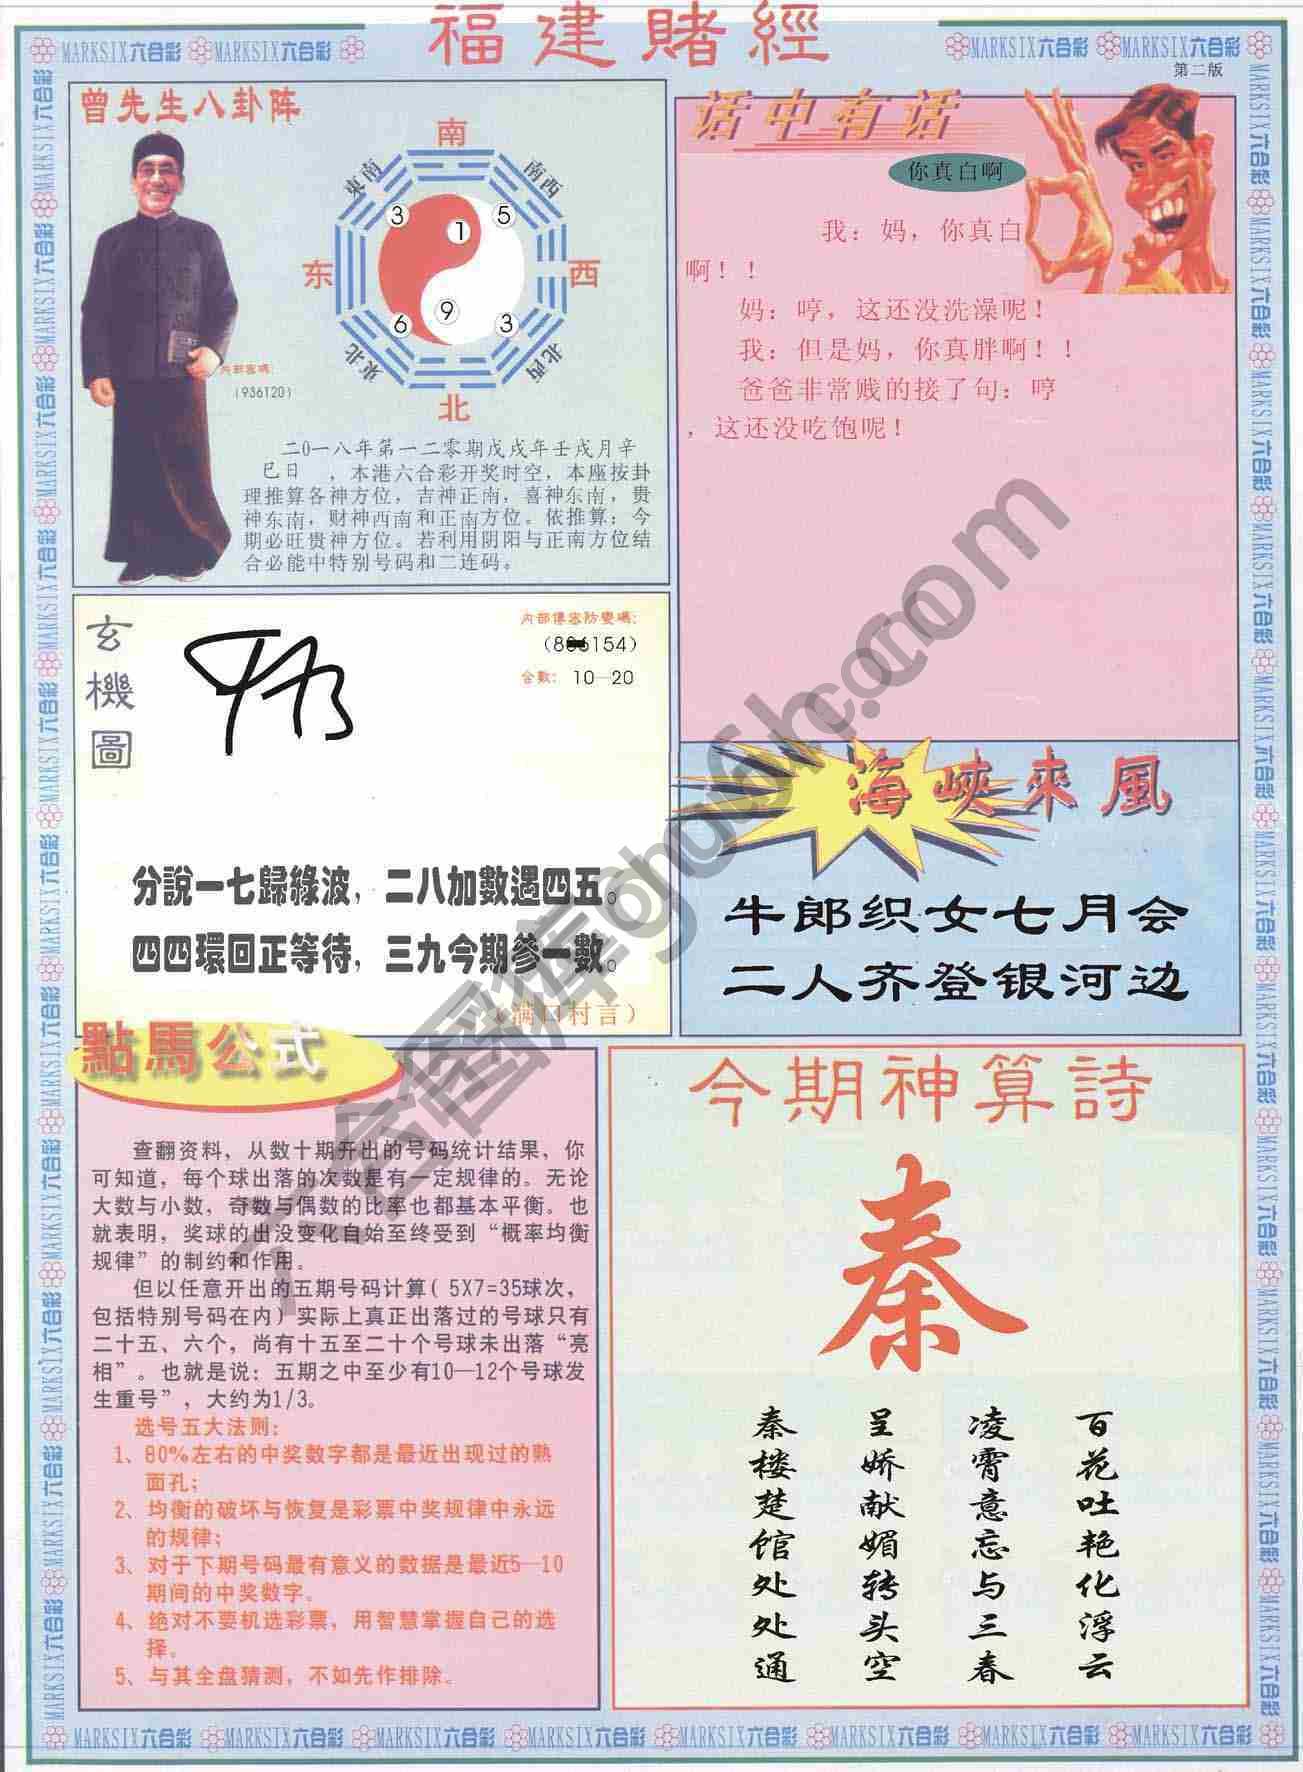 福建賭經
MARKSIX六合彩 MARKSIX六合彩 MARKSIX六合彩 MARKSIX六合彩
第二版
曾先生八卦阵
南
東南
南西
3
1
5
东
西
6
9
3
東北
北西
北
内部密碼:
(936120)
二0一八年第一二零期戊戌年壬戌月辛
巳日 ,本港六合彩开奖时空,本座按卦
理推算各神方位,吉神正南,喜神东南,贵
神东南,财神西南和正南方位。依推算:今
期必旺贵神方位。若利用阴阳与正南方位结
合必能中特别号码和二连码。
话中有话
你真白啊
我:妈,你真白
啊!!
妈:哼,这还没洗澡呢!
我:但是妈,你真胖啊!!
爸爸非常贱的接了句:哼
,这还没吃饱呢!
玄機圖
内部傳密防變碼:
合數: 10—20
分說一七歸綠波,二八加數遇四五。
四四環回正等待,三九今期參一數。
(满口村言)
海峽來風
牛郎织女七月会
二人齐登银河边
點馬公式
查翻资料,从数十期开出的号码统计结果,你
可知道,每个球出落的次数是有一定规律的。无论
大数与小数,奇数与偶数的比率也都基本平衡。也
就表明,奖球的出没变化自始至终受到“概率均衡
规律”的制约和作用。
但以任意开出的五期号码计算(5X7=35球次,
包括特别号码在内)实际上真正出落过的号球只有
二十五、六个,尚有十五至二十个号球未出落“亮
相”。也就是说:五期之中至少有10—12个号球发
生重号”,大约为1/3。
选号五大法则:
1、80%左右的中奖数字都是最近出现过的熟
面孔;
2、均衡的破坏与恢复是彩票中奖规律中永远
的规律;
3、对于下期号码最有意义的数据是最近5—10
期间的中奖数字。
4、绝对不要机选彩票,用智慧掌握自己的选
择。
5、与其全盘猜测,不如先作排除。
今期神算詩
秦
百花吐艳化浮云
凌霄意忘与三春
呈娇献媚转头空
秦楼楚馆处处通
MARKSIX六合彩 MARKSIX六合彩 MARKSIX六合彩 MARKSIX六合彩 MARKSIX六合彩 MARKSIX六合彩 MARKSIX六合彩 MARKSIX六合彩